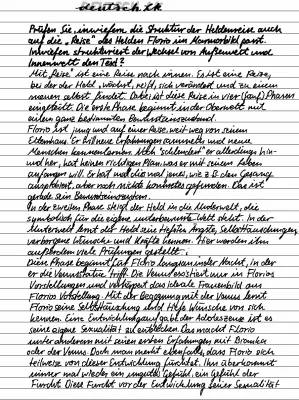 deutsch LK
Prüfen Sie, inwiefern die Struktur der Heldenreise auch
auf die „Reise“ des Helden Florio im Marmorbild passt.
Inwiefern strukturiert der Wechsel von Außenwelt und
Innenwelt den Text?
Mit Reise ist eine Reise nach innen. Es ist eine Reise,
bei der der Held wächst, reift, sich verändert und zu einem
neuen selbst findet. Dabei ist diese Reise in vier (fünf) Phasen
eingeteilt. Die erste Phase beginnt in der Oberwelt mit
einem ganz bestimmten Bewusstseinszustand.
Florio ist jung und auf einer Reise, weit weg von seinem
Elternhaus. Er will neue Erfahrungen sammeln und neue
Menschen kennenlernen. Also „schlendert“ er allerdings hin-
und her, hat keinen richtigen Plan, was er mit seinem Leben
anfangen will. Er hat mal dies mal jenes, wie z.B. den Gesang
ausprobiert, aber noch nichts konkretes gefunden. Das ist
gerade sein Bewusstseinszustand.
In der zweiten Phase steigt der Held in die Unterwelt, die
symbolisch für die eigene unterbewusste Welt steht. In der
Unterwelt lernt der Held seine tiefsten Ängste, Selbsttäuschungen,
verborgene Wünsche und Kräfte kennen. Hier werden ihm
außerdem viele Prüfungen gestellt.
Diese Phase beginnt bei Florio in jener Nacht, in der
er die Venusstatue trifft. Die Venus existiert nur in Florios
Vorstellungen und verkörpert das ideale Frauenbild aus
Florios Vorstellung. Mit der Begegnung mit der Venus lernt
Florio seine Selbsttäuschung und tiefe Wünsche von sich
kennen. Eine Entwicklungsaufgabe der Adoleszenz ist es
seine eigene Sexualität zu entdecken. Das macht Florio
unter anderem mit seinen ersten Erfahrungen mit Bianka
oder der Venus. Doch man merkt ebenfalls, dass Florio sich
teilweise vor dieser Entwicklung fürchtet. Ihn überkommt
immer mal wieder ein ungutes Gefühl, ein Gefühl der
Furcht. Diese Furcht vor der Entwicklung seiner Sexualität